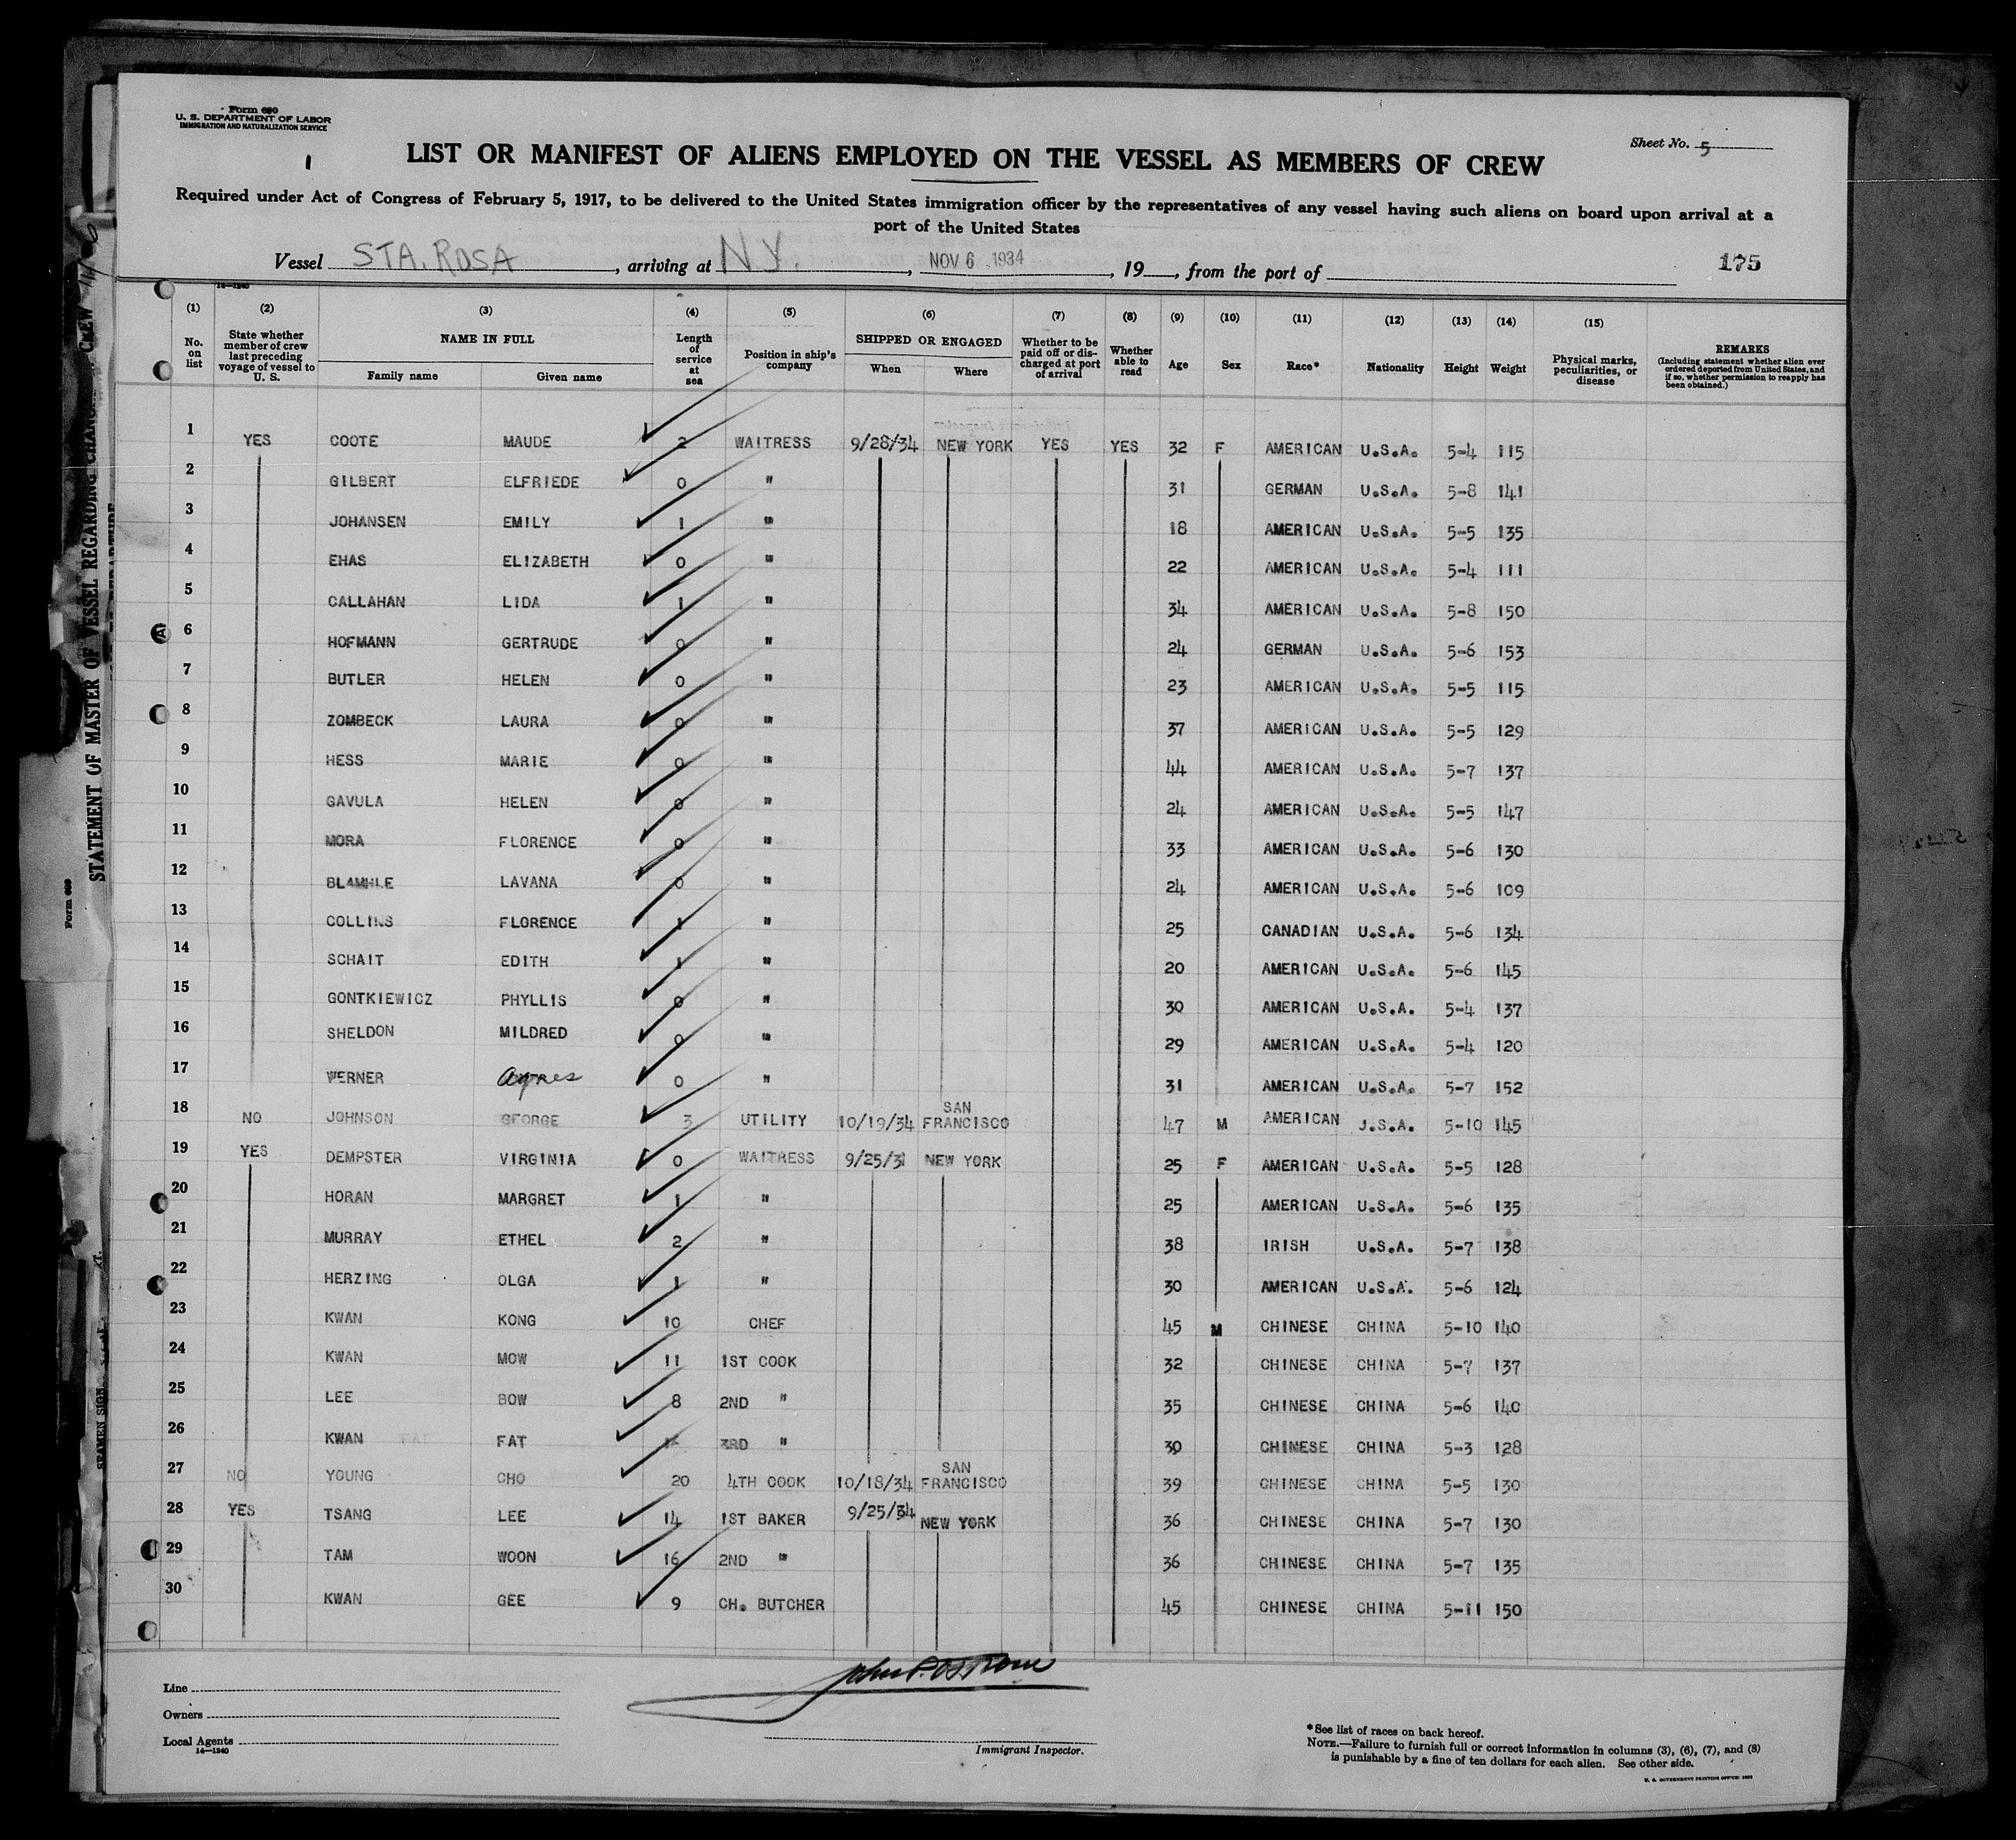 Form 680
U. S. DEPARTMENT OF LABOR
IMMIGRATION AND NATURALIZATION SERVICE
Sheet No. 5
LIST OR MANIFEST OF ALIENS EMPLOYED ON THE VESSEL AS MEMBERS OF CREW
Required under Act of Congress of February 5, 1917, to be delivered to the United States immigration officer by the representatives of any vessel having such aliens on board upon arrival at a
port of the United States
Vessel STA. ROSA, arriving at N.Y., NOV 6 1934, 19, from the port of
175
14-1240
(1) No. on list
(2) State whether member of crew last preceding voyage of vessel to U. S.
(3) NAME IN FULL Family name Given name
(4) Length of service at sea
(5) Position in ship's company
(6) SHIPPED OR ENGAGED When Where
(7) Whether to be paid off or discharged at port of arrival
(8) Whether able to read
(9) Age
(10) Sex
(11) Race*
(12) Nationality
(13) Height
(14) Weight
(15) Physical marks, peculiarities, or disease
REMARKS (Including statement whether alien ever ordered deported from United States, and if so, whether permission to reapply has been obtained.)
1 YES COOTE MAUDE 2 WAITRESS 9/28/34 NEW YORK YES YES 32 F AMERICAN U.S.A. 5-4 115
2 GILBERT ELFRIEDE 0 " 31 GERMAN U.S.A. 5-8 141
3 JOHANSEN EMILY 1 " 18 AMERICAN U.S.A. 5-5 135
4 EHAS ELIZABETH 0 " 22 AMERICAN U.S.A. 5-4 111
5 CALLAHAN LIDA 1 " 34 AMERICAN U.S.A. 5-8 150
6 HOFMANN GERTRUDE 0 " 24 GERMAN U.S.A. 5-6 153
7 BUTLER HELEN 0 " 23 AMERICAN U.S.A. 5-5 115
8 ZOMBECK LAURA 0 " 37 AMERICAN U.S.A. 5-5 129
9 HESS MARIE 0 " 44 AMERICAN U.S.A. 5-7 137
10 GAVULA HELEN 0 " 24 AMERICAN U.S.A. 5-5 147
11 MORA FLORENCE 0 " 33 AMERICAN U.S.A. 5-6 130
12 BLAMHLE LAVANA 0 " 24 AMERICAN U.S.A. 5-6 109
13 COLLINS FLORENCE 1 " 25 CANADIAN U.S.A. 5-6 134
14 SCHAIT EDITH 1 " 20 AMERICAN U.S.A. 5-6 145
15 GONTKIEWICZ PHYLLIS 0 " 30 AMERICAN U.S.A. 5-4 137
16 SHELDON MILDRED 0 " 29 AMERICAN U.S.A. 5-4 120
17 WERNER Agnes 0 " 31 AMERICAN U.S.A. 5-7 152
18 NO JOHNSON GEORGE 3 UTILITY 10/19/34 SAN FRANCISCO 47 M AMERICAN U.S.A. 5-10 145
19 YES DEMPSTER VIRGINIA 0 WAITRESS 9/25/3 NEW YORK 25 F AMERICAN U.S.A. 5-5 128
20 HORAN MARGRET 1 " 25 AMERICAN U.S.A. 5-6 135
21 MURRAY ETHEL 2 " 38 IRISH U.S.A. 5-7 138
22 HERZING OLGA 1 " 30 AMERICAN U.S.A. 5-6 124
23 KWAN KONG 10 CHEF 45 M CHINESE CHINA 5-10 140
24 KWAN MOW 11 1ST COOK 32 CHINESE CHINA 5-7 137
25 LEE BOW 8 2ND " 35 CHINESE CHINA 5-6 140
26 KWAN FAT 3RD " 30 CHINESE CHINA 5-3 128
27 NO YOUNG CHO 20 4TH COOK 10/18/34 SAN FRANCISCO 39 CHINESE CHINA 5-5 130
28 YES TSANG LEE 14 1ST BAKER 9/25/34 NEW YORK 36 CHINESE CHINA 5-7 130
29 TAM WOON 16 2ND " 36 CHINESE CHINA 5-7 135
30 KWAN GEE 9 CH. BUTCHER 45 CHINESE CHINA 5-11 150
Line
Owners
Local Agents
14-1240
Immigrant Inspector.
*See list of races on back hereof.
NOTE.—Failure to furnish full or correct information in columns (3), (6), (7), and (8)
is punishable by a fine of ten dollars for each alien. See other side.
U. S. GOVERNMENT PRINTING OFFICE
STATEMENT OF MASTER OF VESSEL REGARDING
Form 680
SEAMEN SIGN